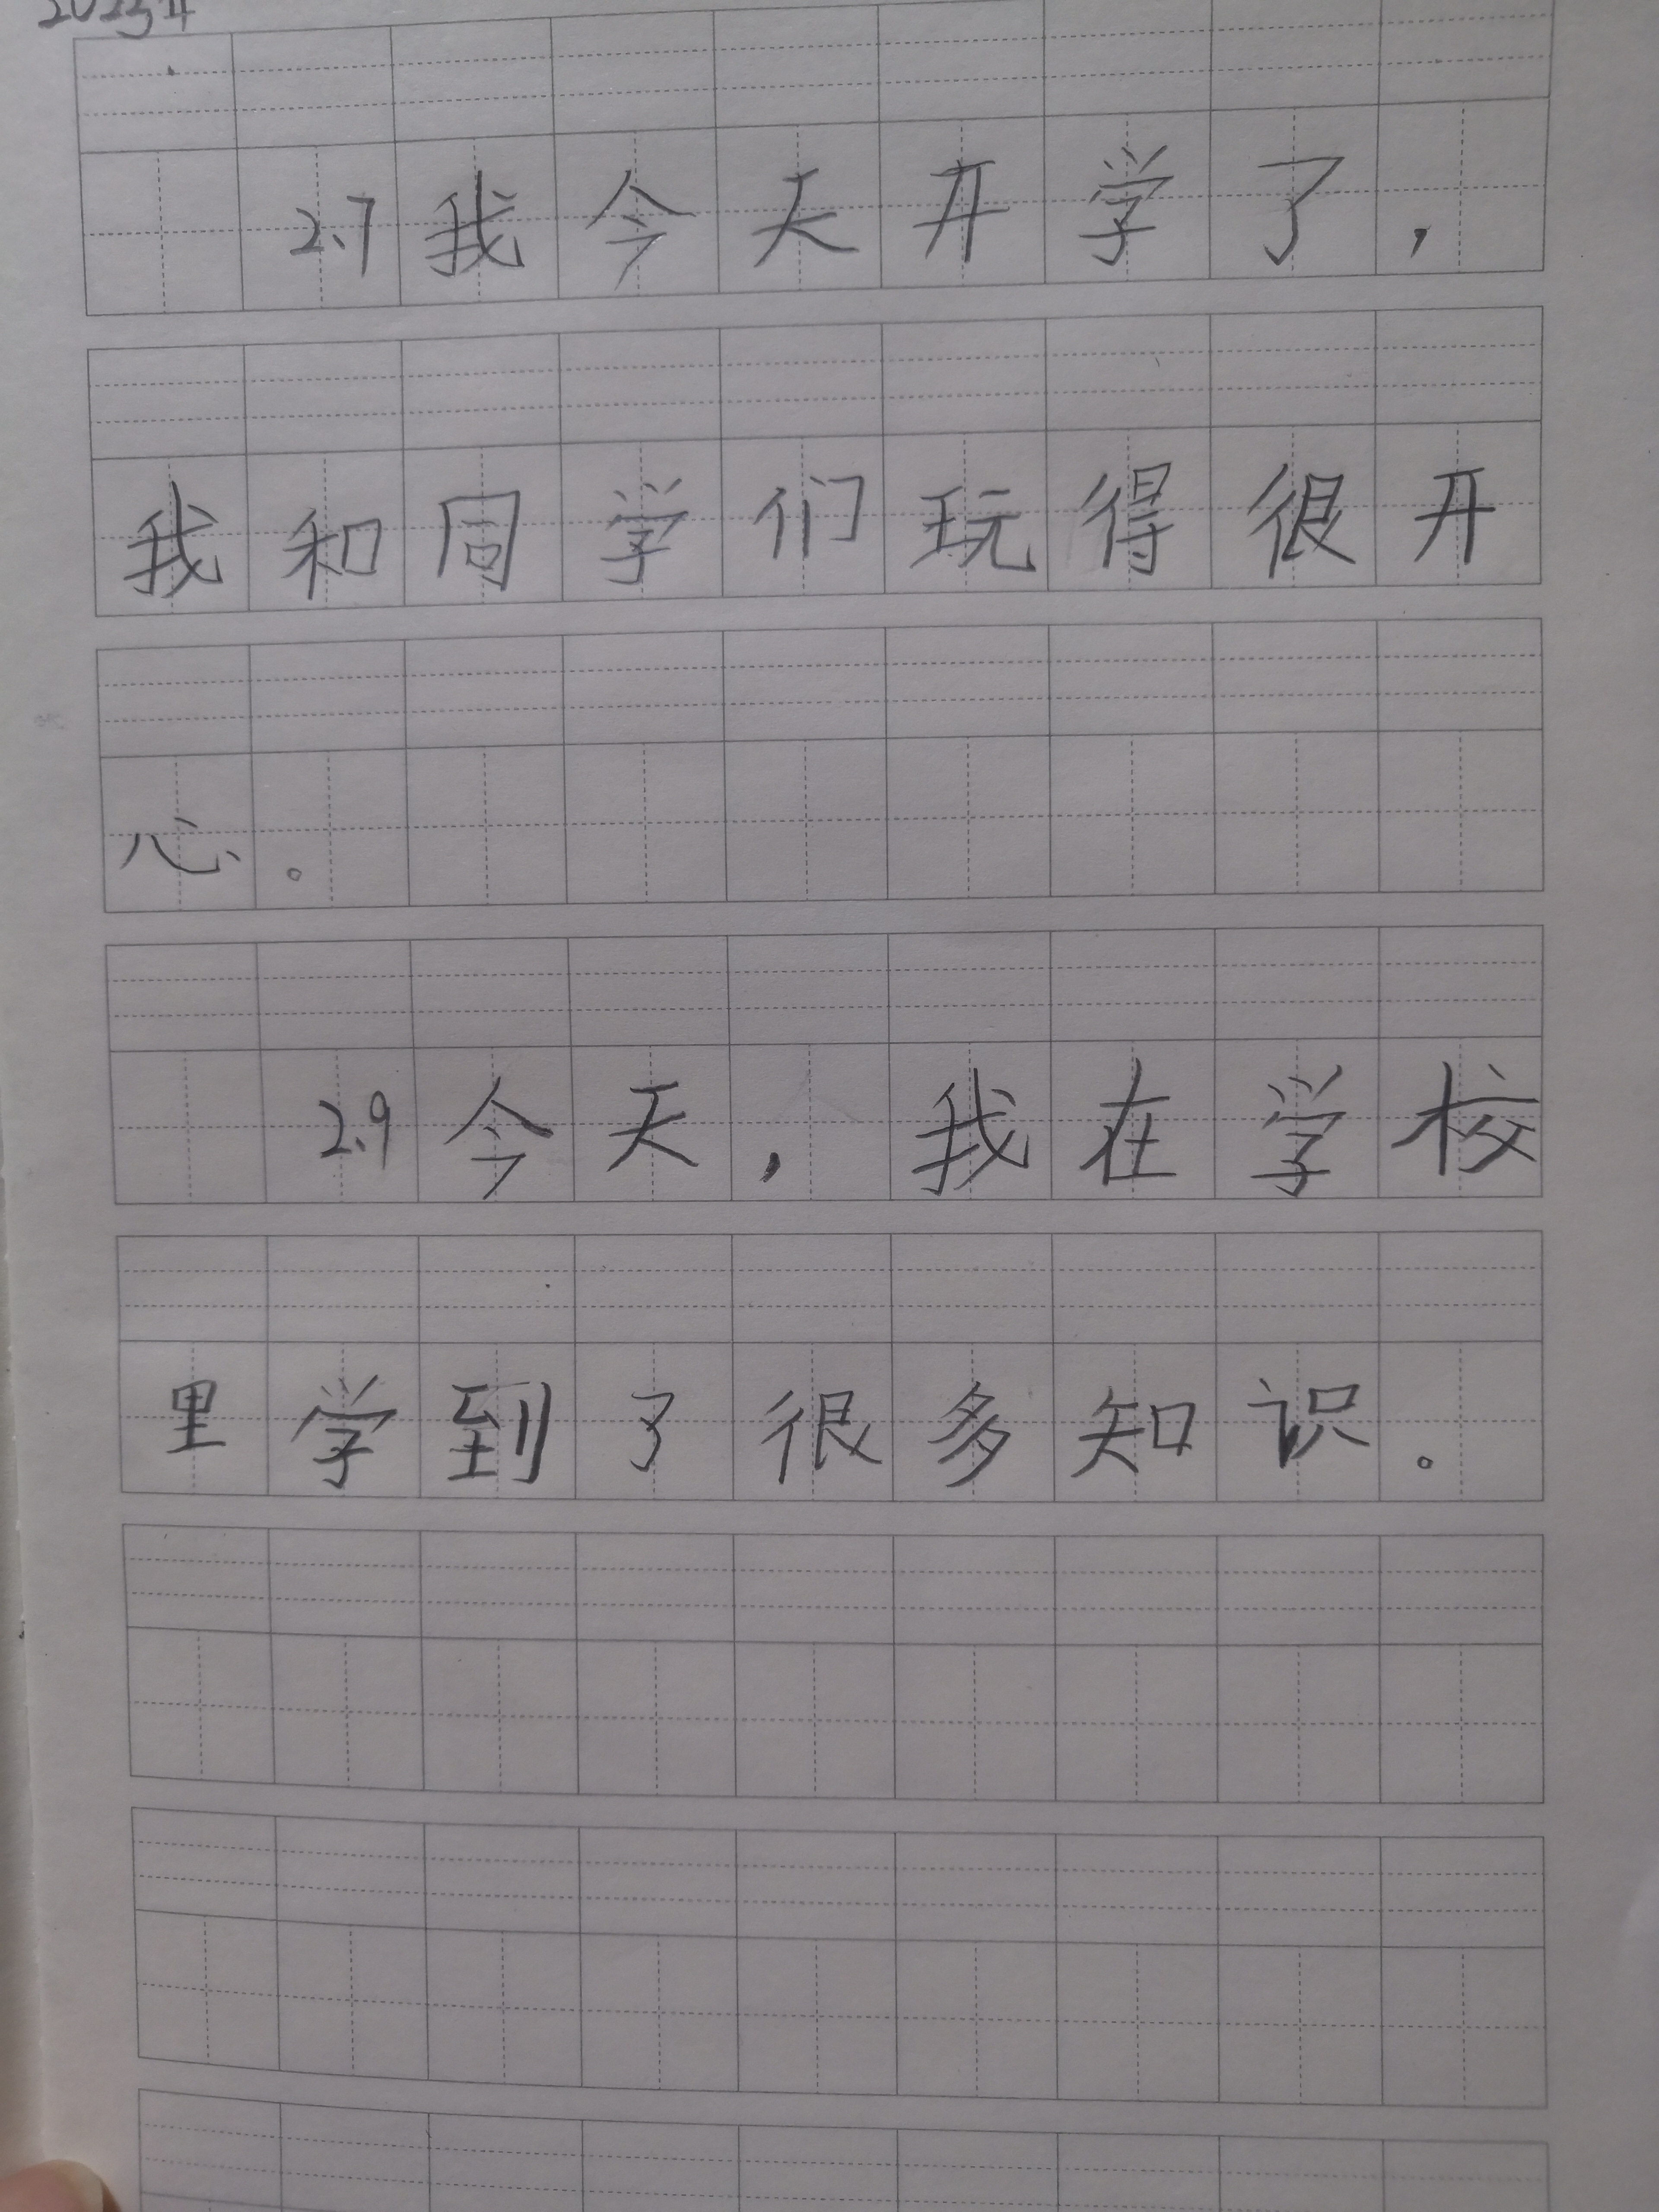 2023年
2.7我今天开学了，
我和同学们玩得很开
心。
2.9今天，我在学校
里学到了很多知识。